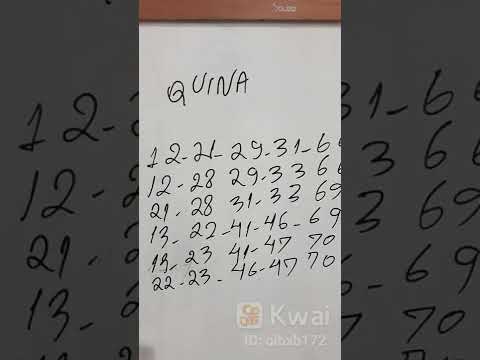 QUINA
12-21-29-31-
12-28 29-33
21-28 31-33 69
13-22-41-46-69
13-23 41-47 70
22-23-46-47 70
Kwai
ID: aibxb172